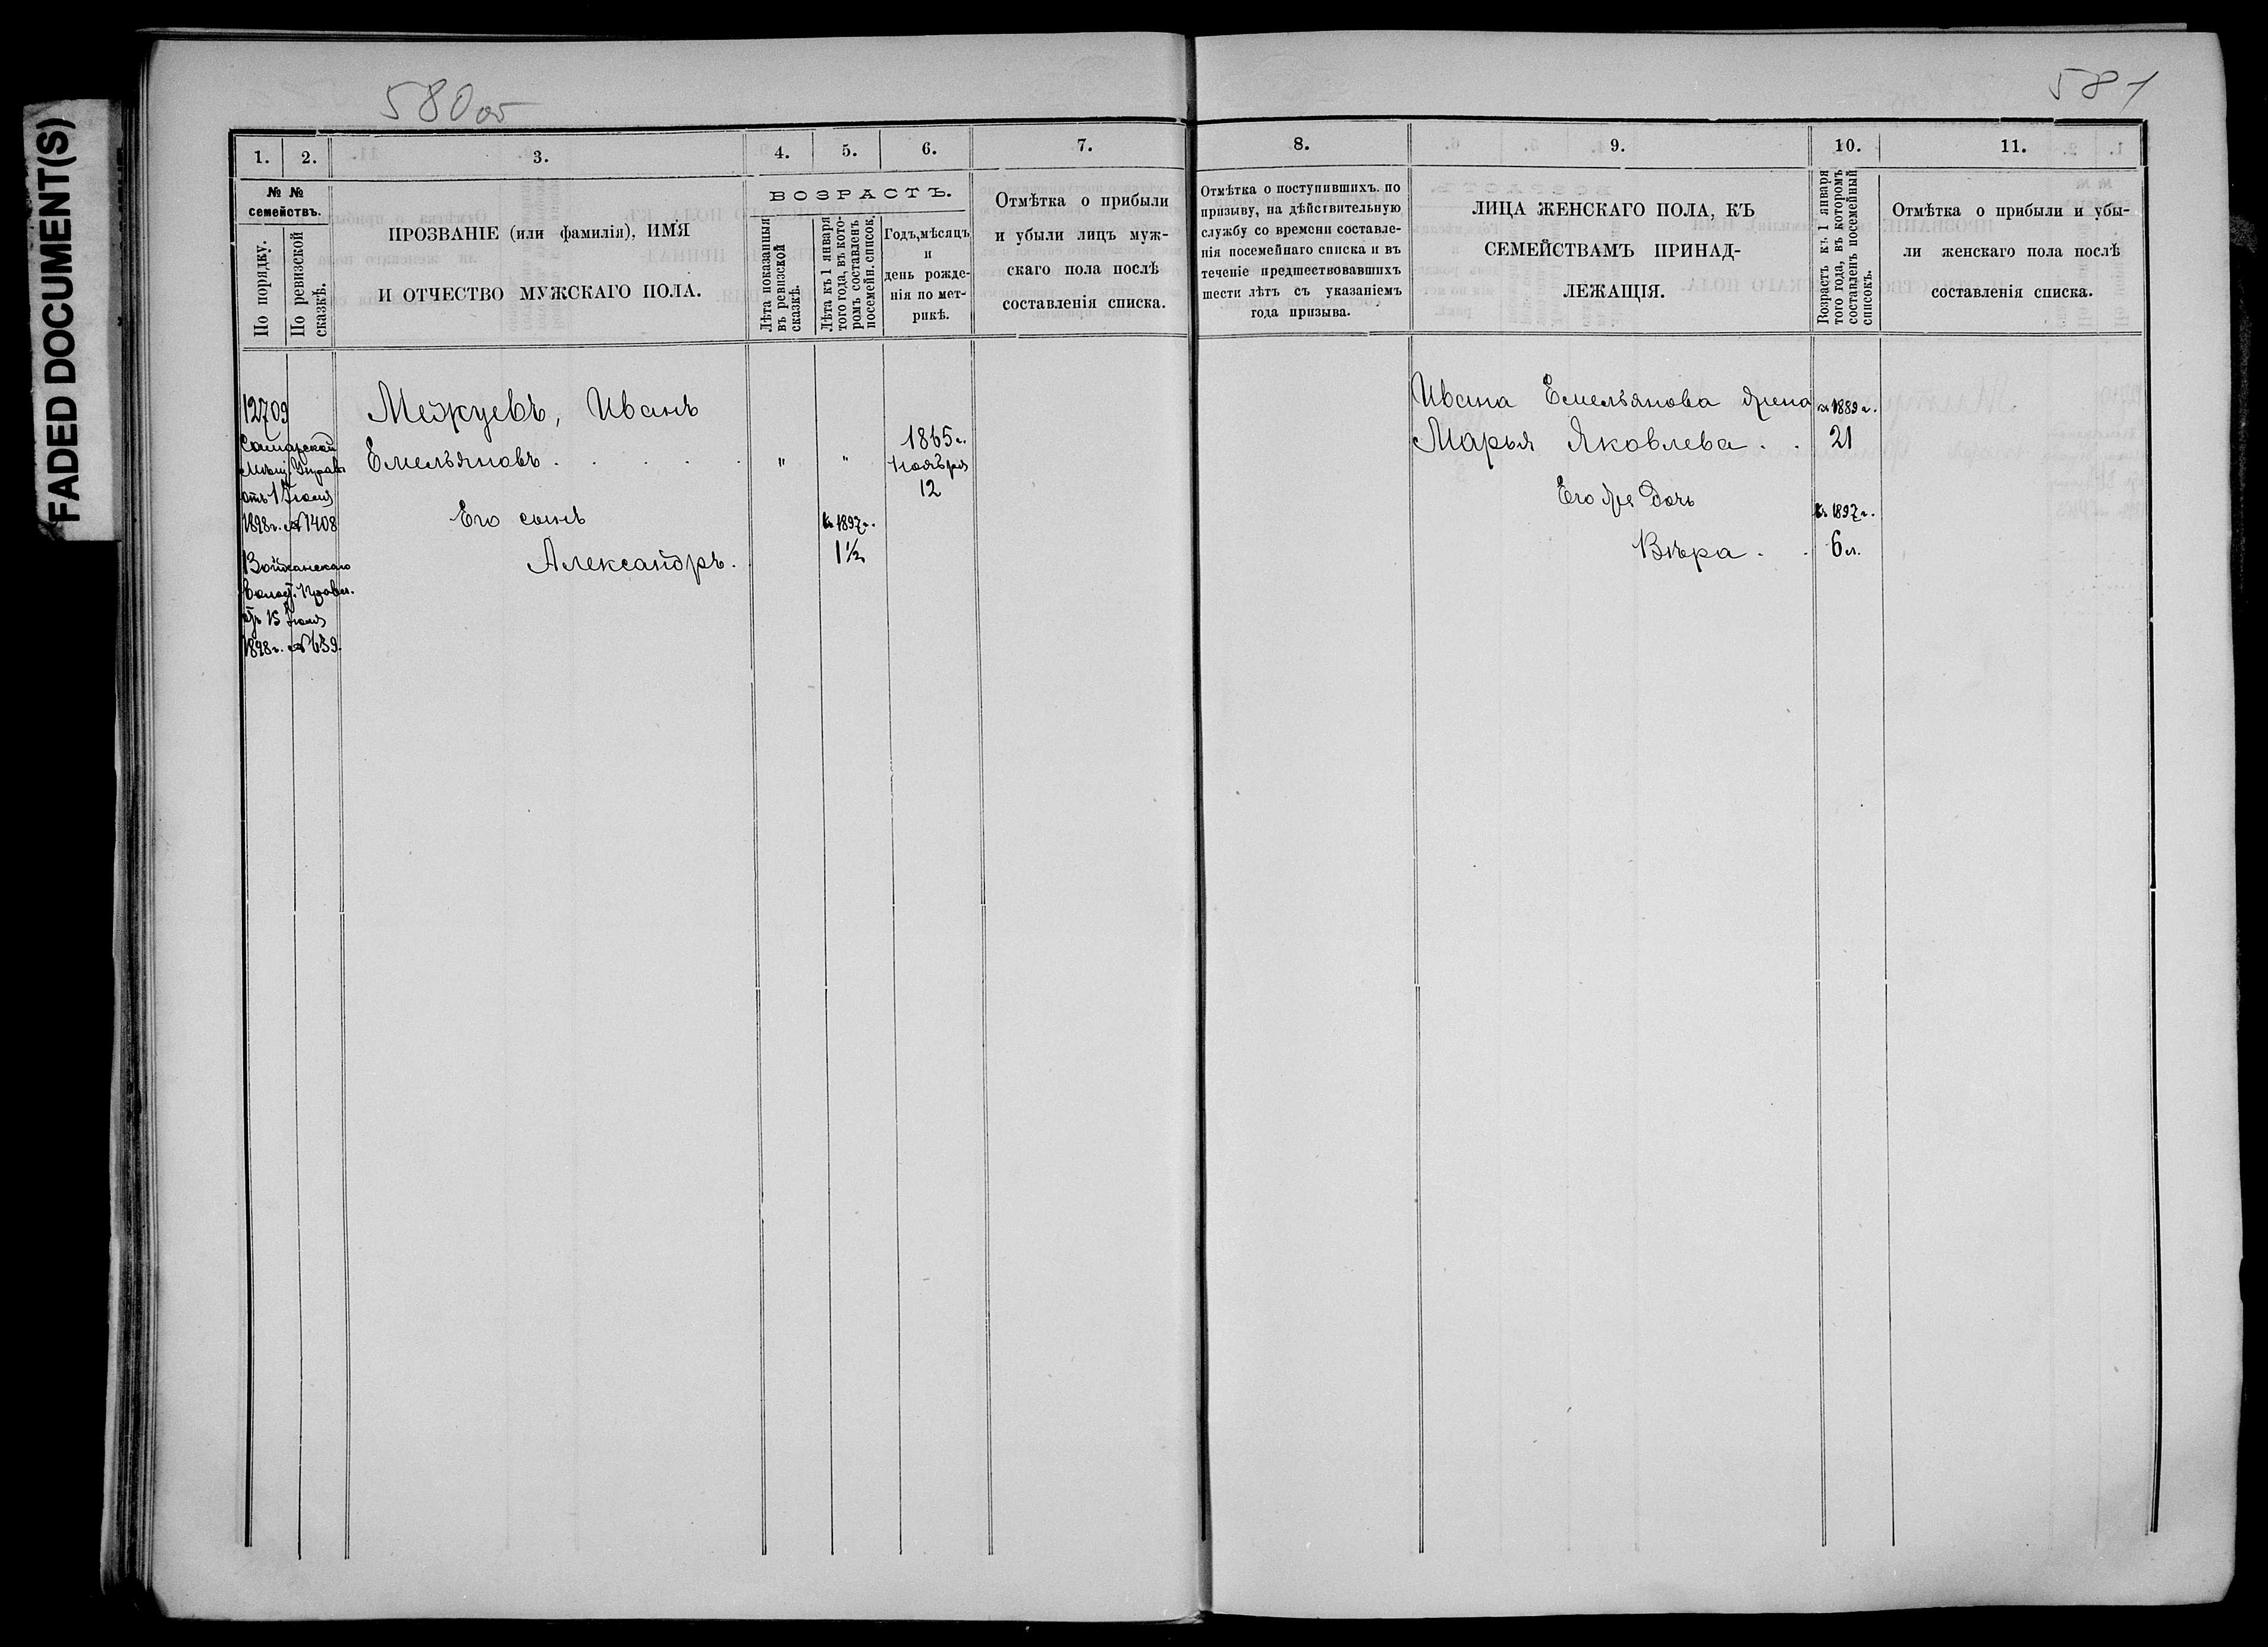 FADED DOCUMENT(S)
580об
581
1. 2. 3. 4. 5. 6. 7.
№ №
семействъ.
По порядку.
По ревизской
сказкѣ.
ПРОЗВАНІЕ (или фамилія), ИМЯ
И ОТЧЕСТВО МУЖСКАГО ПОЛА.
ВОЗРАСТЪ.
Лѣта показанныя
въ ревизской
сказкѣ.
Лѣта къ 1 января
того года, въ кото-
ромъ составленъ
посемейн. список.
Годъ, мѣсяцъ
и
день рожде-
нія по мет-
рикѣ.
Отмѣтка о прибыли
и убыли лицъ муж-
скаго пола послѣ
составленія списка.
12709
Самарской
Мѣщ. Управы
отъ 1 Іюля
1898г. № 1408
волост. Правл.
отъ 15 Іюля
1898г. № 639.
Межуевъ, Иванъ
Емельяновъ . . . . .
Его сынъ
Александръ.
" "
1865г.
Ноября
12
къ 1897г.
1½
8. 9. 10. 11.
Отмѣтка о поступившихъ. по
призыву, на дѣйствительную
службу со времени составле-
нія посемейнаго списка и въ
теченіе предшествовавшихъ
шести лѣтъ съ указаніемъ
года призыва.
ЛИЦА ЖЕНСКАГО ПОЛА, КЪ
СЕМЕЙСТВАМЪ ПРИНАД-
ЛЕЖАЩІЯ.
Возрастъ къ 1 января
того года, въ которомъ
составленъ посемейный
списокъ.
Отмѣтка о прибыли и убы-
ли женскаго пола послѣ
составленія списка.
Ивана Емельянова жена
къ 1889г.
Марья Яковлева . .
21
Его же дочь
къ 1897г.
Вѣра . .
6 л.